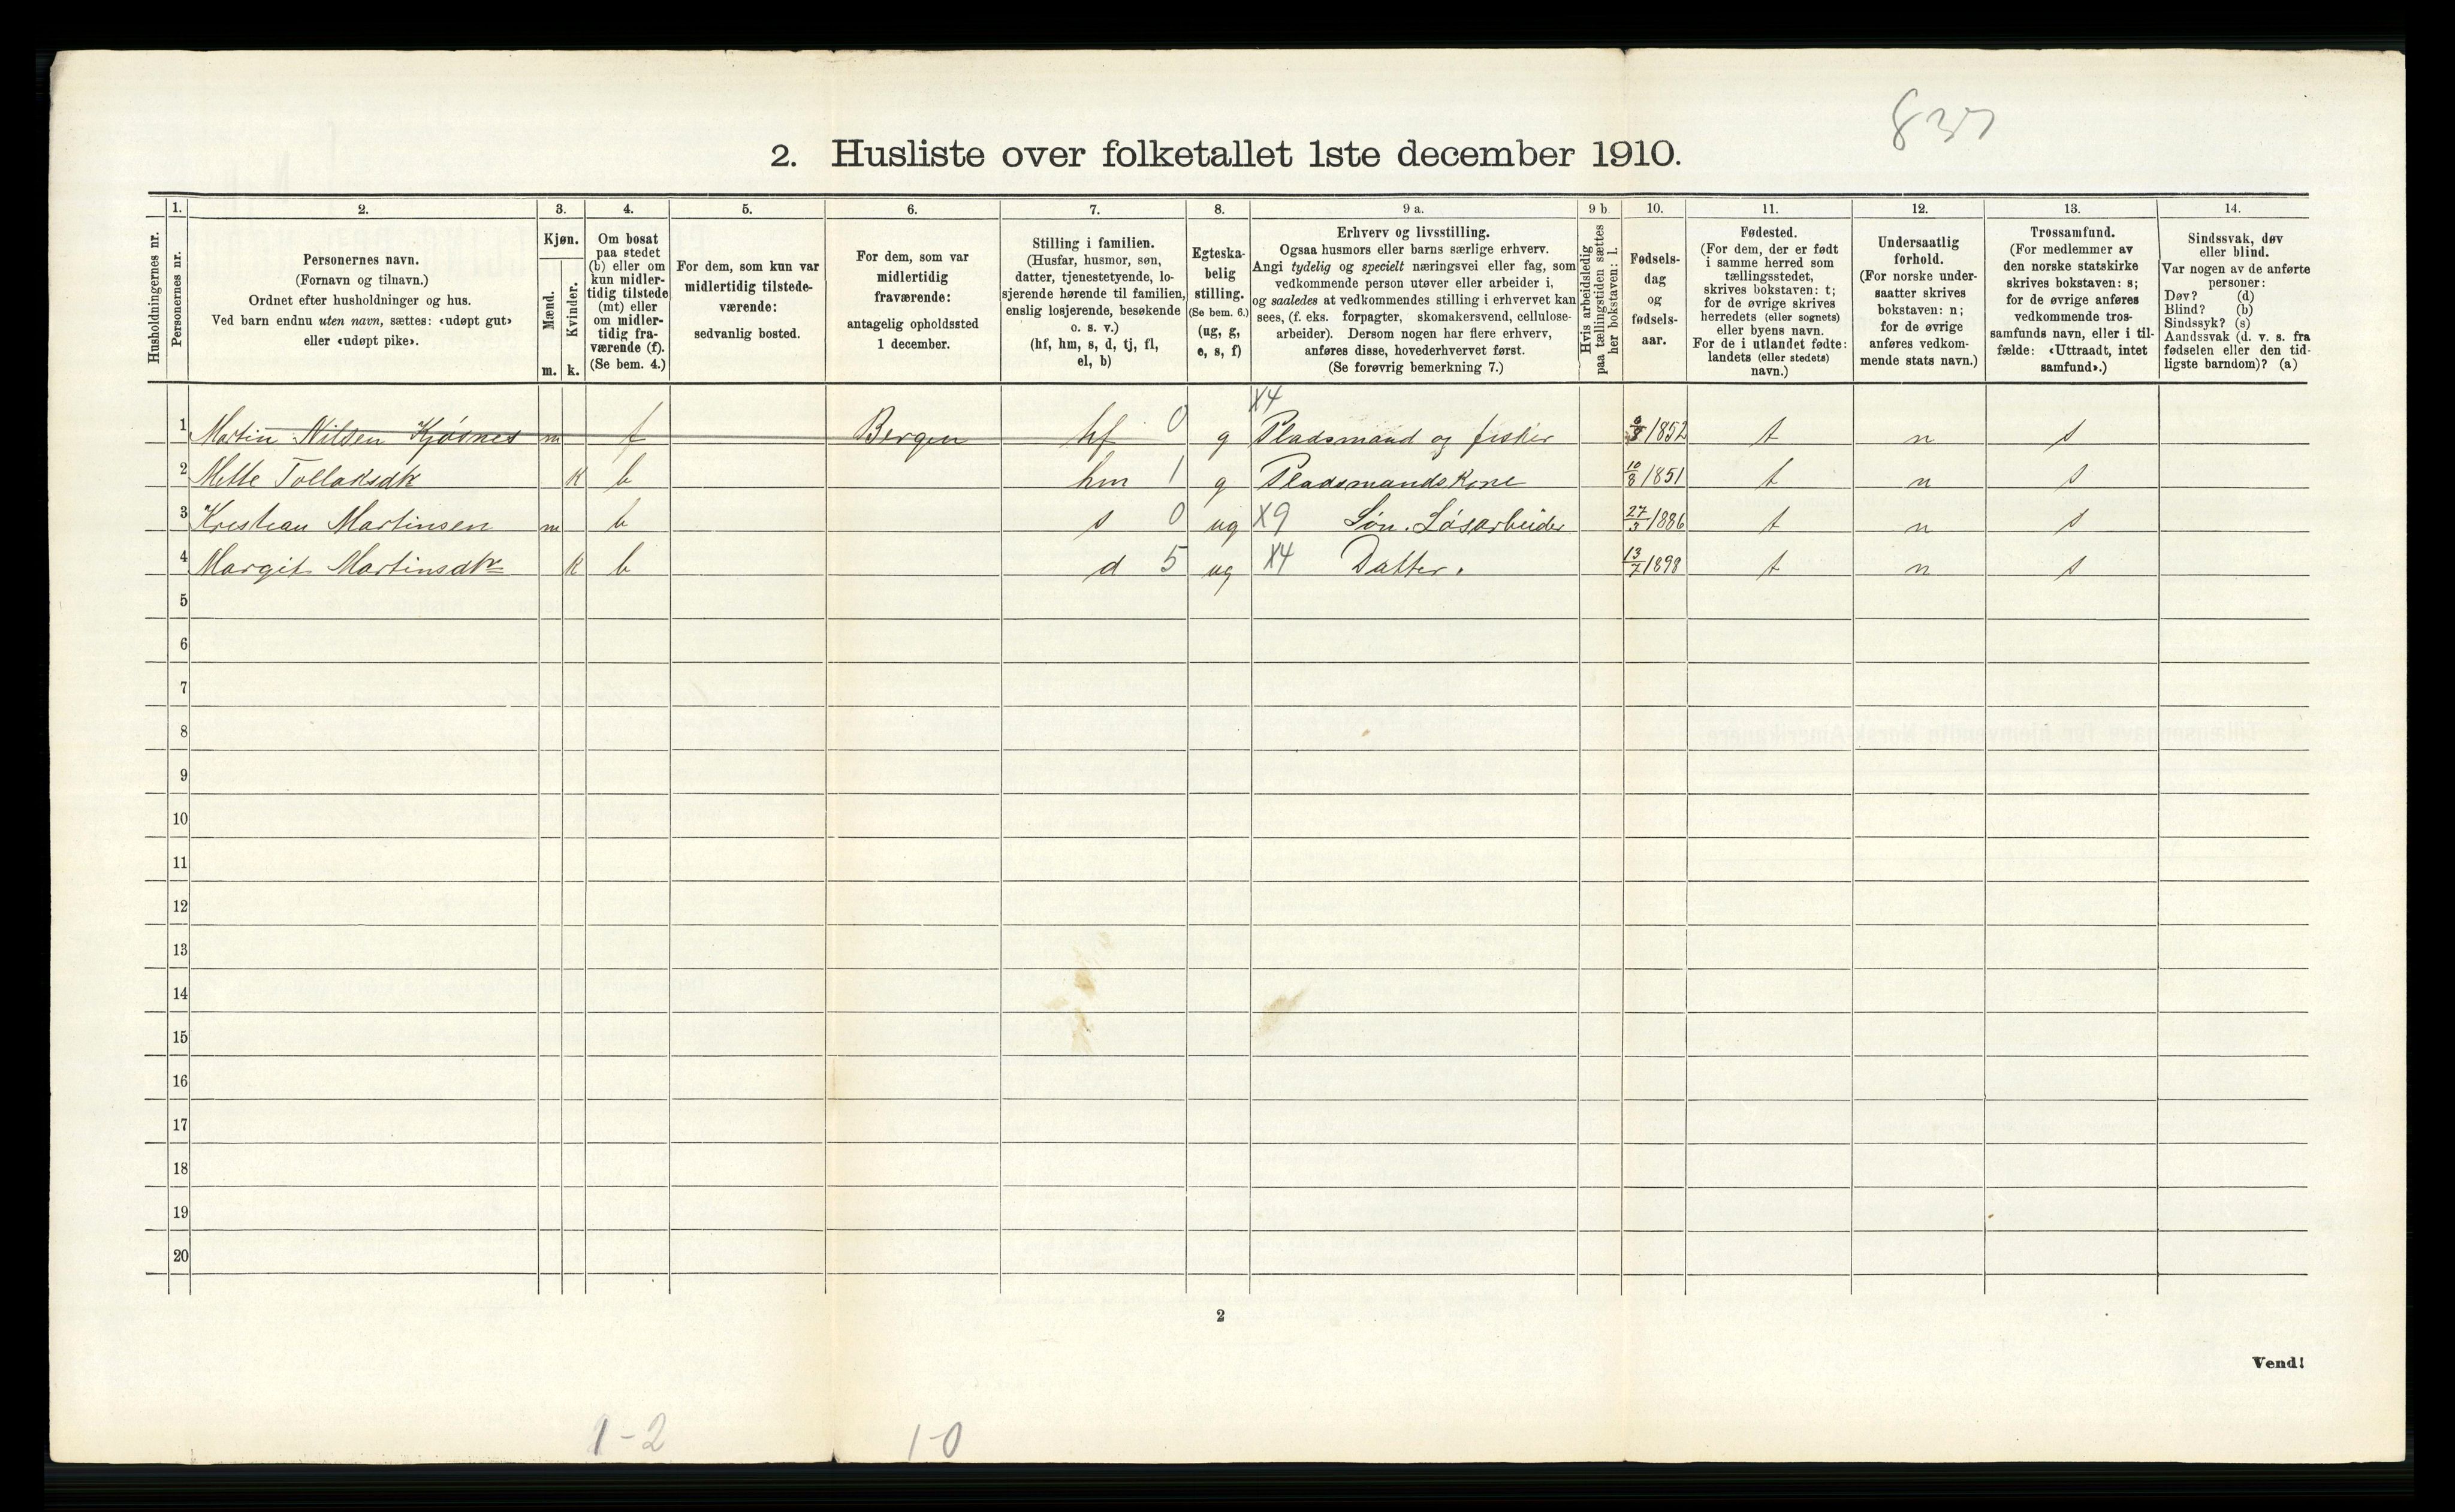 837
2. Husliste over folketallet 1ste december 1910.
Husholdningernes nr.
1. Personernes nr.
2. Personernes navn.
(Fornavn og tilnavn.)
Ordnet efter husholdninger og hus.
Ved barn endnu uten navn, sættes: «udøpt gut»
eller «udøpt pike».
3. Kjøn.
Mænd. m.
Kvinder. k.
4. Om bosat
paa stedet
(b) eller om
kun midler-
tidig tilstede
(mt) eller
om midler-
tidig fra-
værende (f).
(Se bem. 4.)
5. For dem, som kun var
midlertidig tilstede-
værende:
sedvanlig bosted.
6. For dem, som var
midlertidig
fraværende:
antagelig opholdssted
1 december.
7. Stilling i familien.
(Husfar, husmor, søn,
datter, tjenestetyende, lo-
sjerende hørende til familien,
enslig losjerende, besøkende
o. s. v.)
(hf, hm, s, d, tj, fl,
el, b)
8. Egteska-
belig
stilling.
(Se bem. 6.)
(ug, g,
e, s, f)
9 a. Erhverv og livsstilling.
Ogsaa husmors eller barns særlige erhverv.
Angi tydelig og specielt næringsvei eller fag, som
vedkommende person utøver eller arbeider i,
og saaledes at vedkommendes stilling i erhvervet kan
sees, (f. eks. forpagter, skomakersvend, cellulose-
arbeider). Dersom nogen har flere erhverv,
anføres disse, hovederhvervet først.
(Se forøvrig bemerkning 7.)
9 b. Hvis arbeidsledig
paa tællingstiden sættes
her bokstaven: l.
10. Fødsels-
dag
og
fødsels-
aar.
11. Fødested.
(For dem, der er født
i samme herred som
tællingsstedet,
skrives bokstaven: t;
for de øvrige skrives
herredets (eller sognets)
eller byens navn.
For de i utlandet fødte:
landets (eller stedets)
navn.)
12. Undersaatlig
forhold.
(For norske under-
saatter skrives
bokstaven: n;
for de øvrige
anføres vedkom-
mende stats navn.)
13. Trossamfund.
(For medlemmer av
den norske statskirke
skrives bokstaven: s;
for de øvrige anføres
vedkommende tros-
samfunds navn, eller i til-
fælde: «Uttraadt, intet
samfund».)
14. Sindssvak, døv
eller blind.
Var nogen av de anførte
personer:
Døv? (d)
Blind? (b)
Sindssyk? (s)
Aandssvak (d. v. s. fra
fødselen eller den tid-
ligste barndom)? (a)
X4
1 Martin Nilsen Kjøsnes m f Bergen hf 0 g Pladsmand og fisker 1852 t n s
2 Mette Tollaksdtr k b hm 1 g Pladsmandskone 10/8 1851 t n s
3 Kristian Martinsen m b s 0 ug X9 Søn. Løsarbeider 27/3 1886 t n s
4 Margit Martinsdtr k b d 5 ug X4 Datter. 13/7 1898 t n s
5
6
7
8
9
10
11
12
13
14
15
16
17
18
19
20
2
Vend!
1-2 1-0